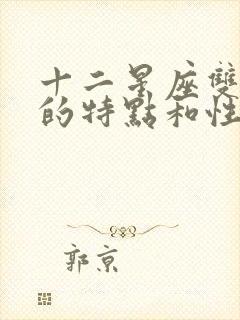 十二星座雙
的特點和性
郭京